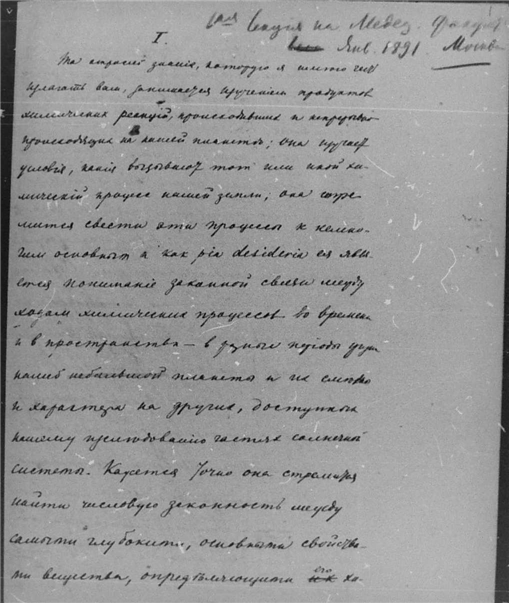 1ая Лекция на Медиц. Факульт
Янв. 1891. Москва
I.
Та отрасль знания, которую я имею честь
излагать вам, занимается изучением продуктов
химических реакций, происходивших и непрерывно
происходящих на нашей планете; она изучает
условия, какия вызывают тот или иной хи-
мический процес нашей земли; она стре
мится свести эти процессы к немно-
гим основным и как pia desideria ея явля
ется понимание законной связи между
ходом химических процессов во времени
и в пространстве – в разные периоды
нашей небольшой планеты и их
и характера на других, доступных
нашему изследованию частях солнечной
системы. Кажется точно она стремится
найти числовую законность между
самыми глубокими, основными свойства-
ми вещества, определяющими его ха-